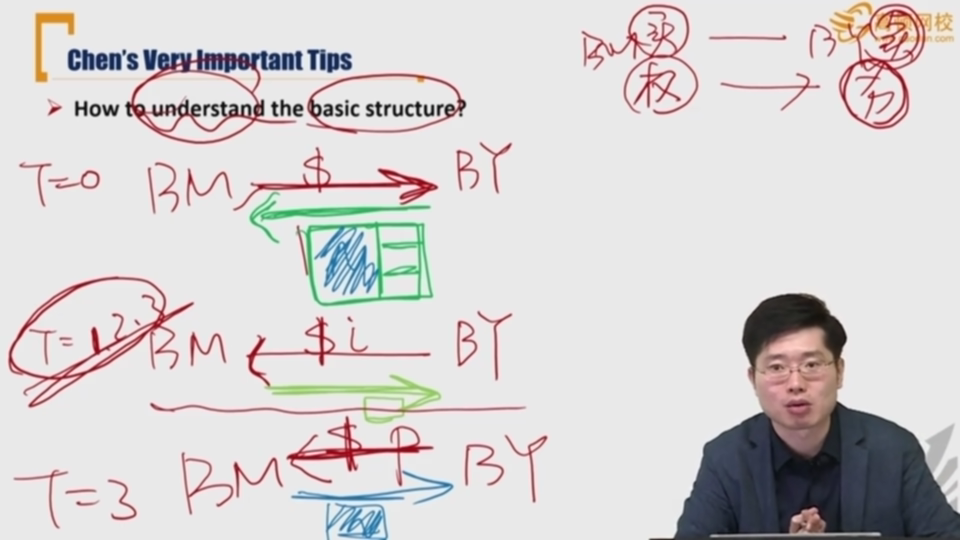 Chen's Very Important Tips
➤ How to understand the basic structure?
BM 买 BY 卖
权
T=0 BM $ BY
T=1.2.3 BM $ i BY
T=3 BM $ P BY
网校